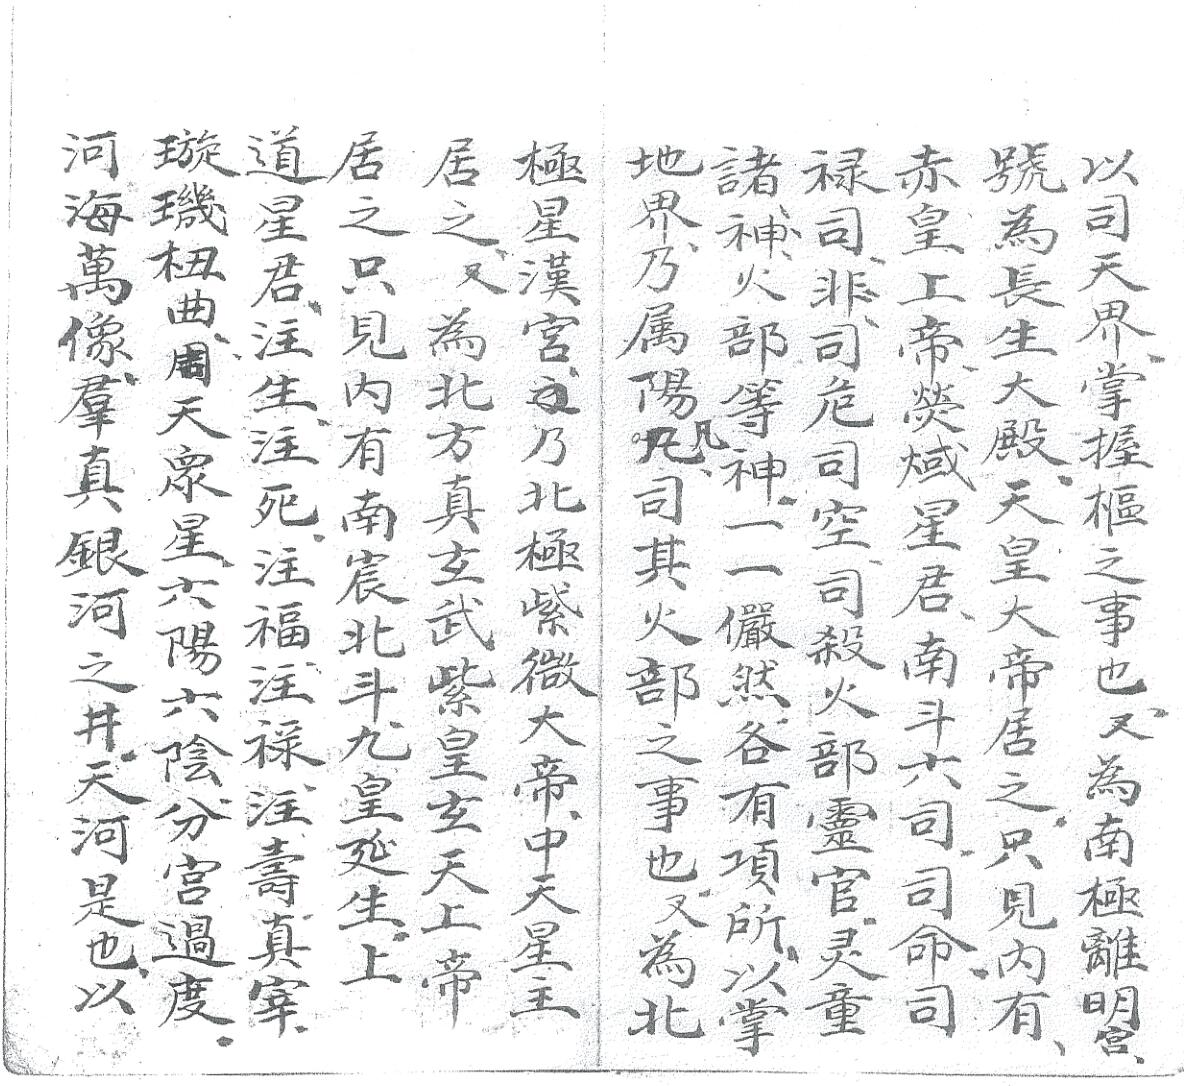 以司天界、掌握樞之事也、又為南極離明宮、
號為長生大殿、天皇大帝居之、只見内有、
赤皇上帝、熒惑星君、南斗六司、司命、司
禄司、非、司危司空、司殺火部靈官、灵童
諸、神、火部等神、一一儼然各有項所、以掌
地界、乃属陽凡、司其火部之事也、又為北
極星漢宮、乃北極紫微大帝、中天星主
居之、又為北方真玄武紫皇玄天上帝
居之只見内有南宸北斗九皇延生、上
道星君、注生、注死、注福注禄、注壽真宰、
璇璣杻曲、周天眾星、六陽六陰分宮過度、
河海萬像、羣真銀河之井、天河是也、以